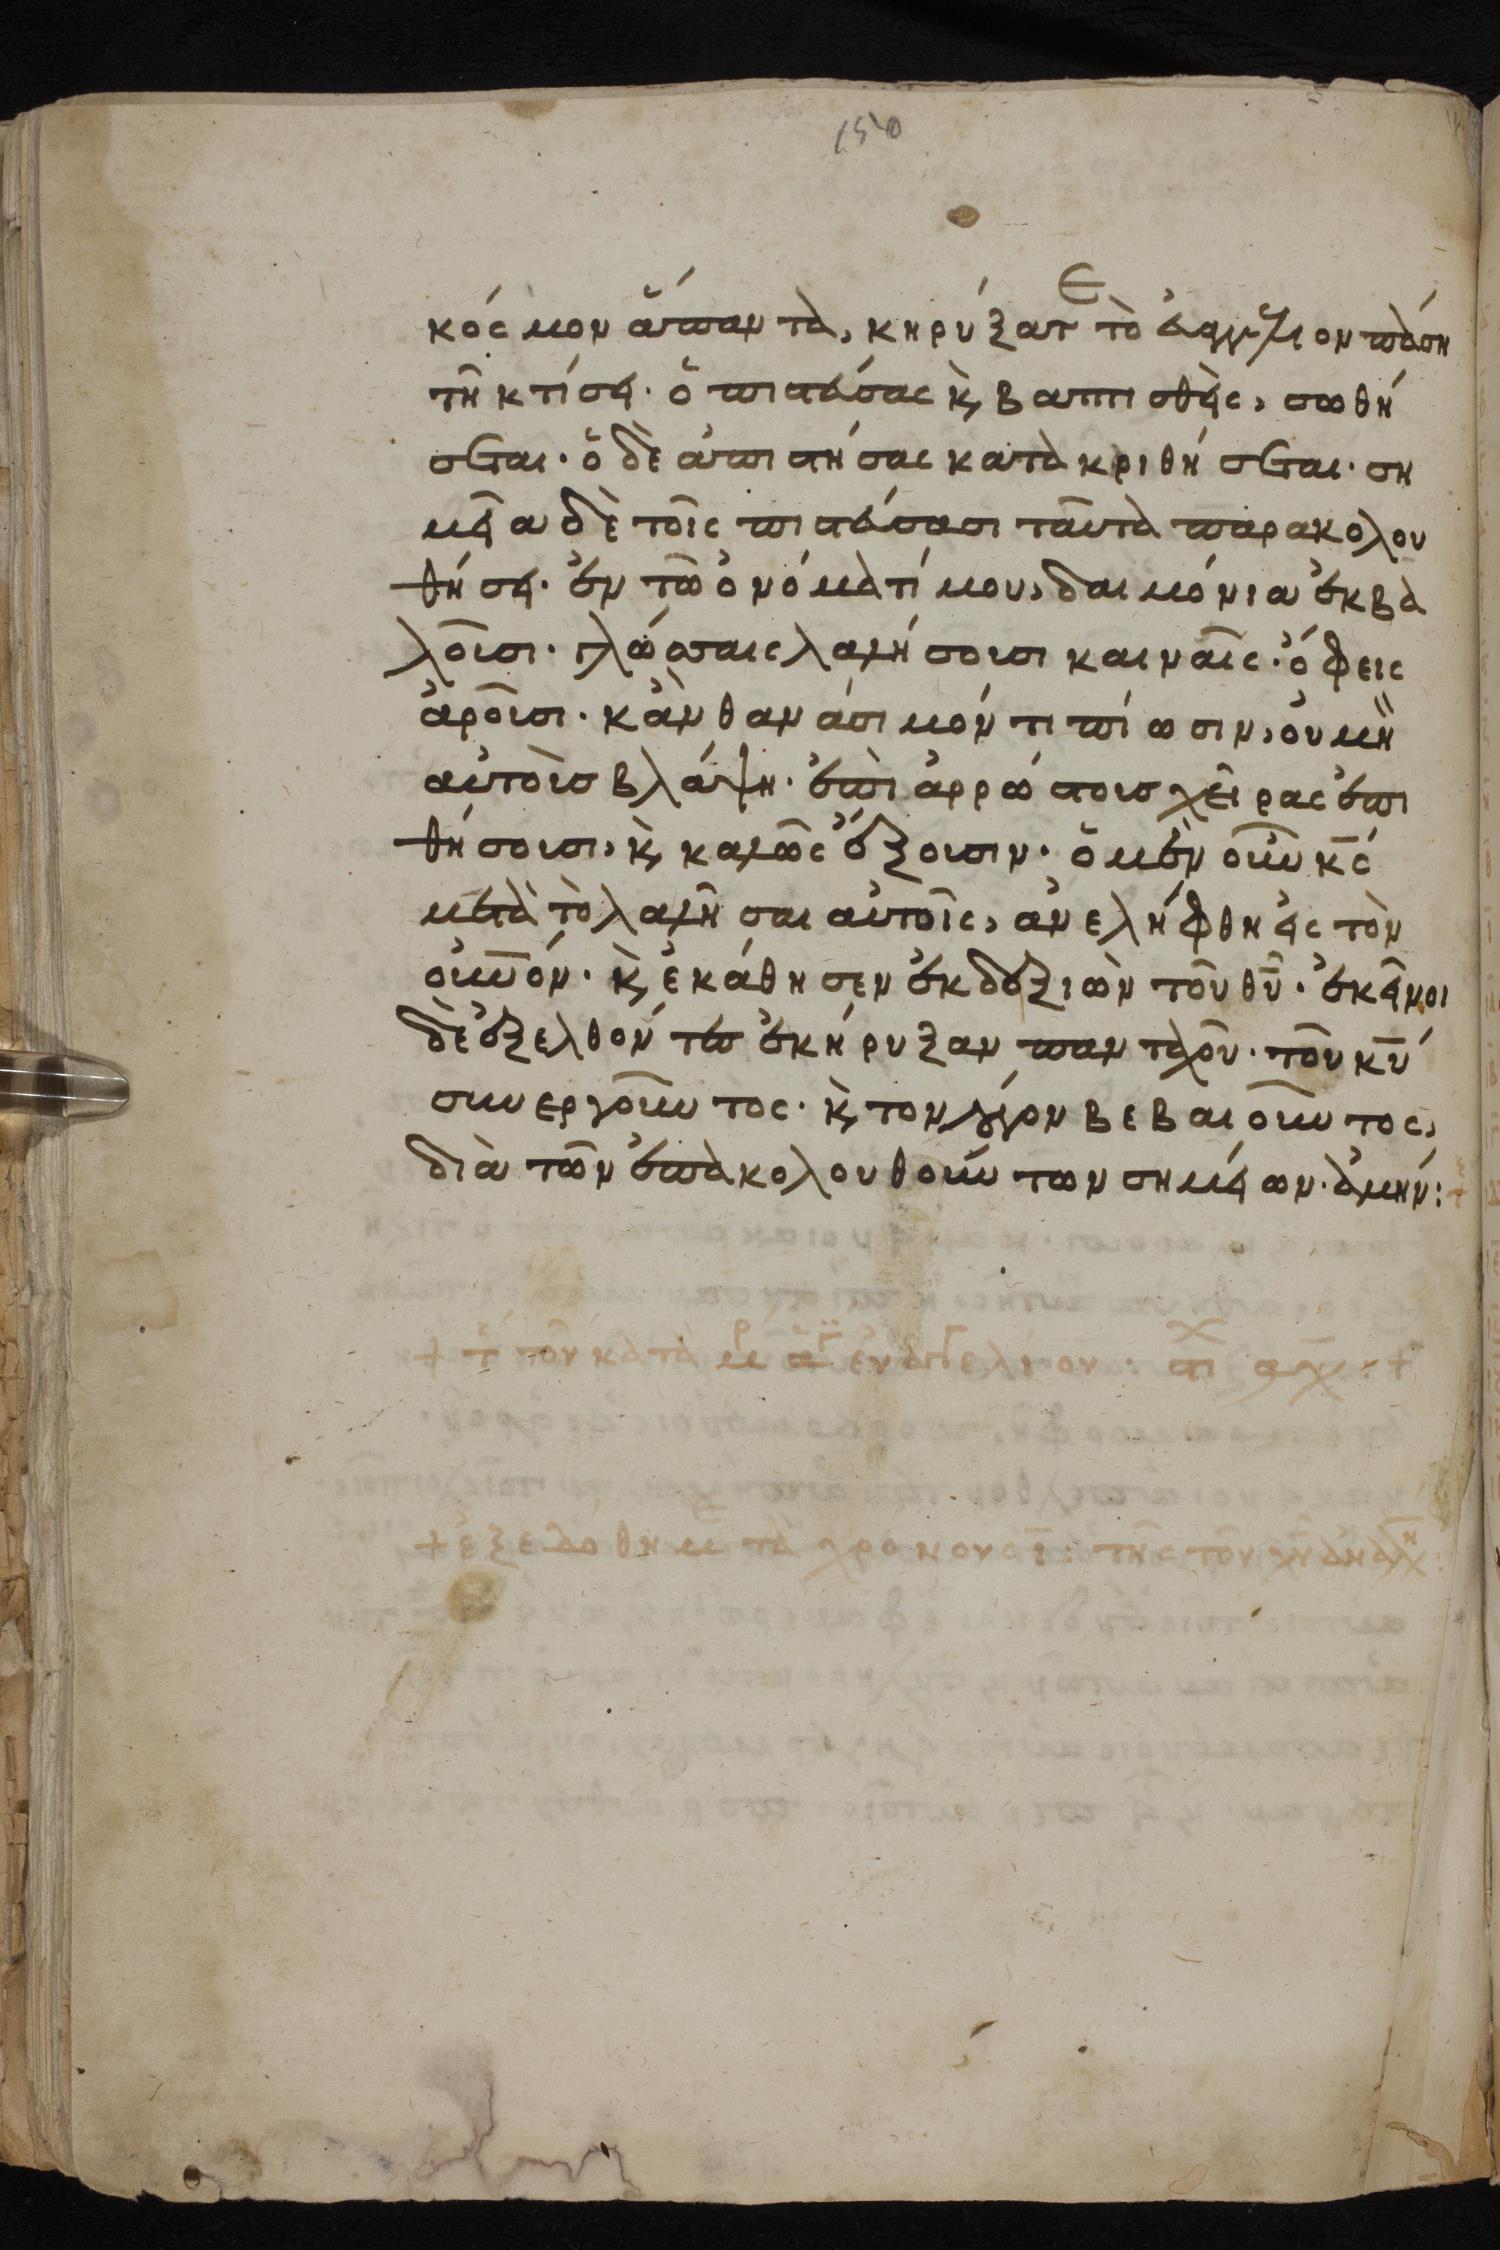 150
κόσμον ἅπαντα, κηρύξατε τὸ εὐαγγέλιον πάση
τῆ κτίσει· ὁ πιστεύσας κ̀ βαπτισθεὶς, σωθή
σεται· ὁ δὲ ἀπιστήσας κατακριθήσεται· ση
μεῖα δὲ τοῖς πιστεύσασι ταῦτα παρακολου
θήσει· ἐν τῶ ὀνόματί μου, δαιμόνια ἐκβα
λοῦσι· γλώσσαις λαλήσουσι καιναῖς· ὄφεις
ἀροῦσι· κἂν θανάσιμόν τι πίωσιν, οὐ μὴ
αὐτοὺς βλάψη· ἐπὶ ἀρρώστους χεῖρας ἐπι
θήσουσι, κ̀ καλῶς ἕξουσιν· ὁ μὲν οὖν κ̅ς
μετὰ τὸ λαλῆσαι αὐτοῖς, ἀνελήφθη εἰς τὸν
οὐνον· κ̀ ἐκάθησεν ἐκ δεξιῶν τοῦ θ̅υ· ἐκεῖνοι
δὲ ἐξελθόντες ἐκήρυξαν πανταχοῦ· τοῦ κ̅υ
συνεργοῦντος· κ̀ τον λόγον βεβαιοῦντος,
διὰ τῶν ἐπακολουθούντων σημείων. ἀμήν:
+ τ τοῦ κατὰ μρ ἁγ εὐαγγελίου: στι αχ :+
+ ἐξεδόθη με τὰ χρόνους ι: τῆς τοῦ χ̅υ ἀναλη: